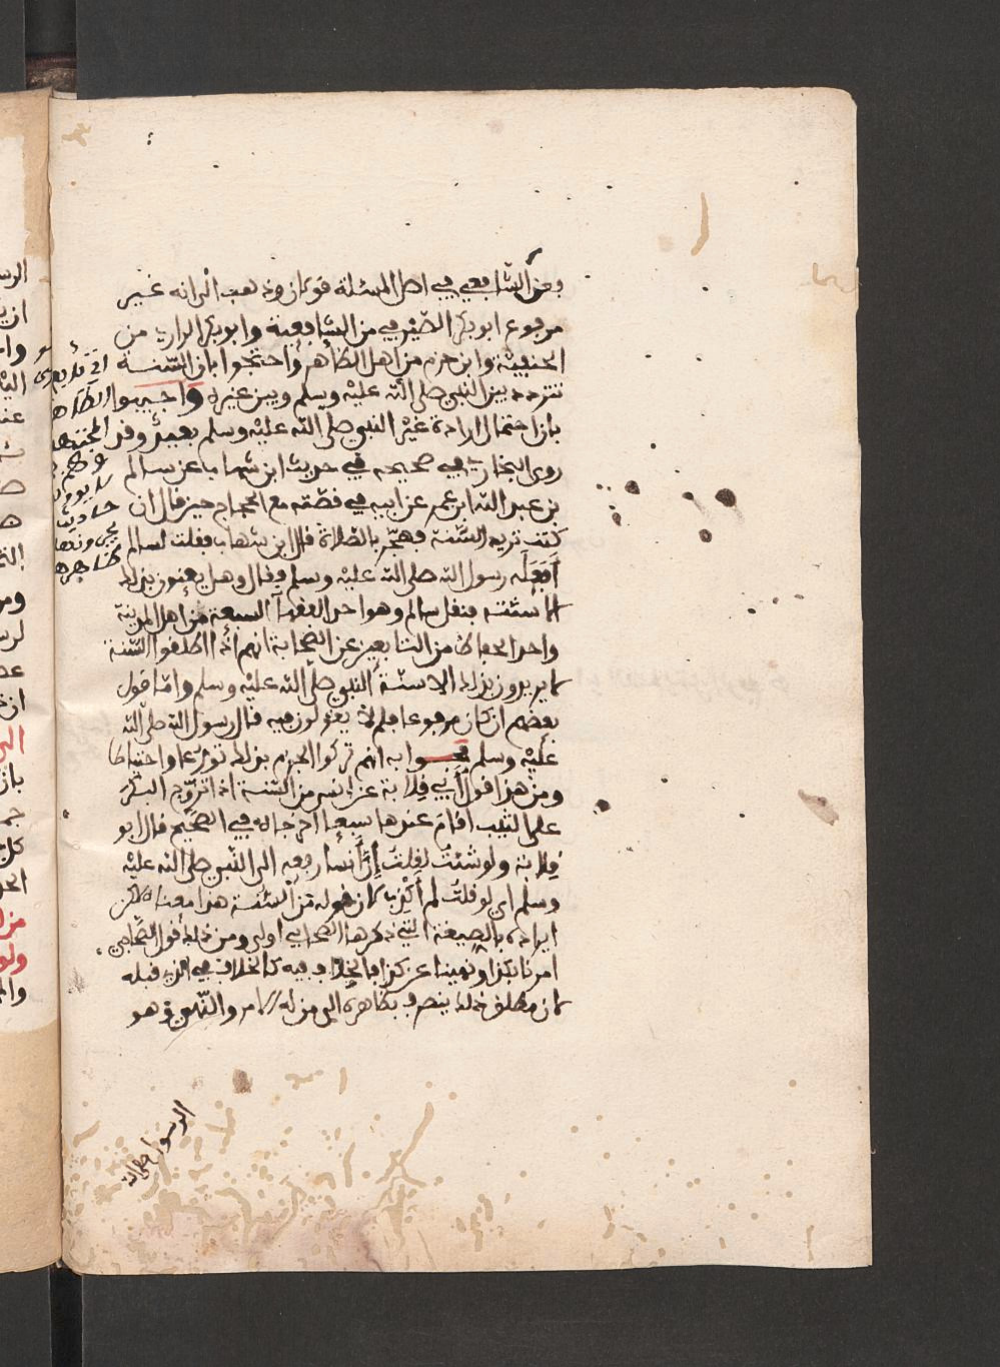 وعن الشافعي في اصل المسئلة قولان وذهب الى انه غير
مرفوع ابو بكر الصيرفي من الشافعية وابو بكر الرازي من
الحنفية وابن حزم من اهل الظاهر واحتجوا بان السنة
تتردد بين النبي صلى الله عليه وسلم وبين غيره واجيبوا
بان احتمال ارادة غير النبي صلى الله عليه وسلم بعيد وقد
روى البخاري في صحيحه في حديث ابن شهاب عن سالم
بن عبد الله ابن عمر عن ابيه في قصته مع الحجاج حين قال ان
كنت تريد السنة فهجّر بالصلاة قال ابن شهاب فقلت لسالم
أفعله رسول الله صلى الله عليه وسلم فقال وهل يعنون بذلك
الا سنته فنقل سالم وهو احد الفقهآ السبعة من اهل المدينة
واحد الحفاظ من التابعين عن الصحابة انهم اذا اطلقوا السنة
لا يريدون بذلك الا سنة النبي صلى الله عليه وسلم واما قول
بعضهم ان كان مرفوعا فلم لا يقولون فيه قال رسول الله صلى الله
عليه وسلم فجوابه انهم تركوا الجزم بذلك تورعا واحتياطا
ومن هذا قول أبي قلابة عن انس من السنة اذا تزوج البكر
على الثيب اقام عندها سبعا اخرجاه في الصحيح قال ابو
قلابة ولو شئت لقلت إن أنسا رفعه الى النبي صلى الله عليه
وسلم اي لو قلت لم أكذب لان قوله من السنة هذا معناه لكن
ايراده بالصيغة التي ذكرها الصحابي اولى ومن ذلك قول الصحابي
امرنا بكذا او نهينا عن كذا فالخلاف فيه كالخلاف في الذي قبله
لان مطلق ذلك ينصرف بظاهره الى من له الامر والنهي وهو
الرسول صلى الله